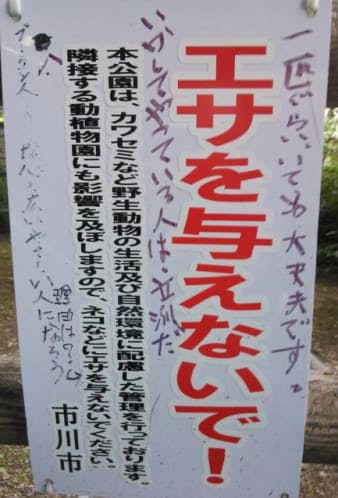 エサを与えないで!
本公園は、カワセミなど野生動物の生活及び自然環境に配慮した管理を行っております。
隣接する動植物園にも影響を及ぼしますので、ネコなどにエサを与えないでください。
市川市
一匹でらいても大丈夫です。
やっている人は立派だ
人になろう
理由は